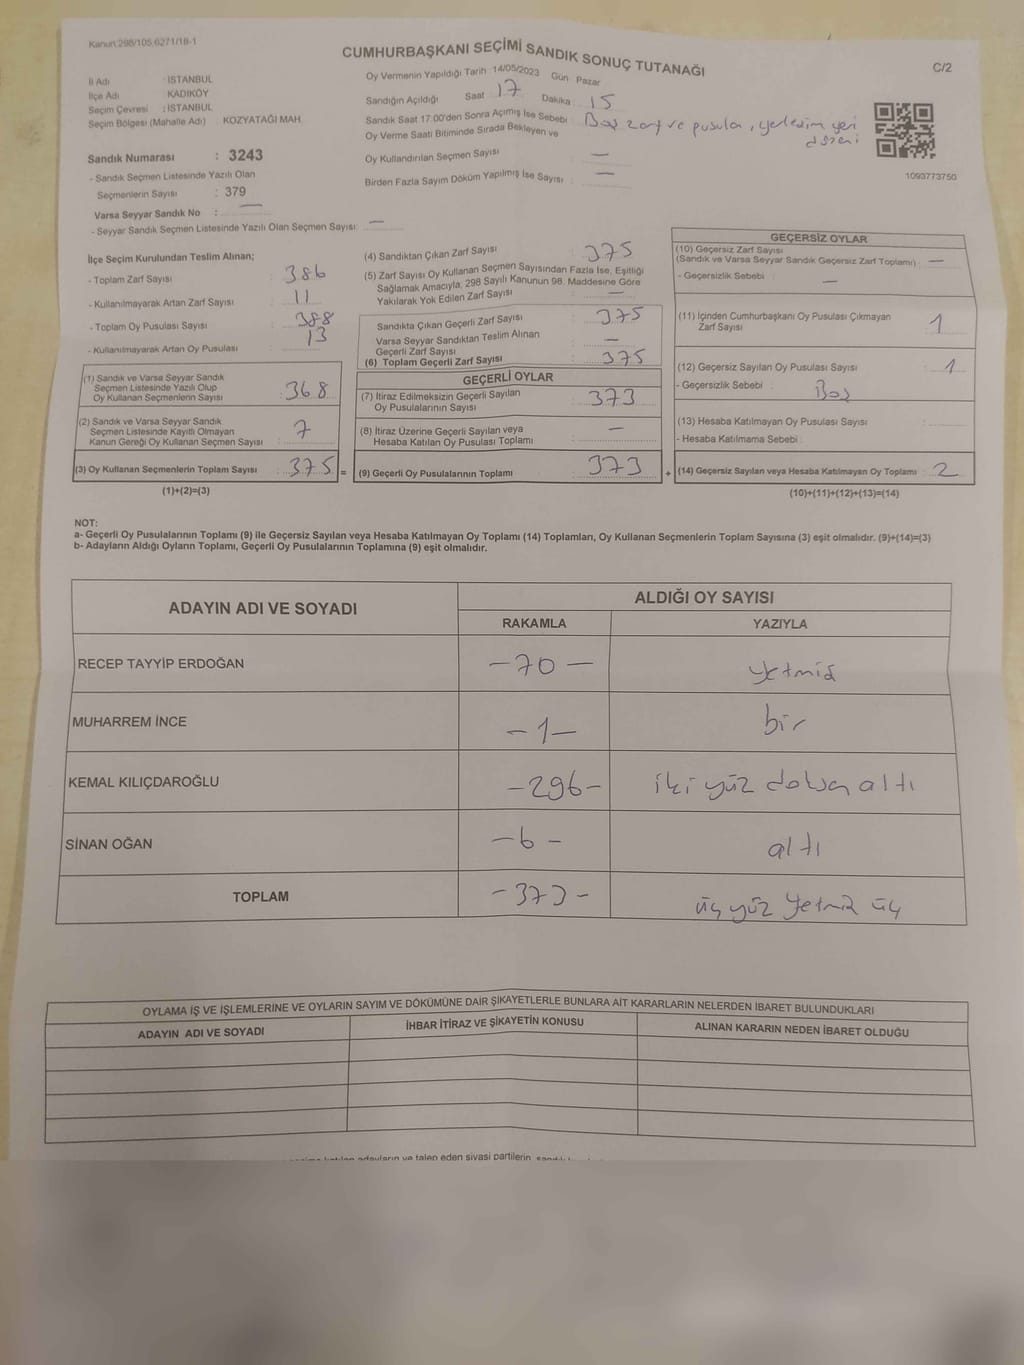 Kanun:298/105,6271/18-1
CUMHURBAŞKANI SEÇİMİ SANDIK SONUÇ TUTANAĞI
C/2
İl Adı : İSTANBUL
İlçe Adı KADIKÖY
Seçim Çevresi : İSTANBUL
Seçim Bölgesi (Mahalle Adı) : KOZYATAĞI MAH.
Oy Vermenin Yapıldığı Tarih 14/05/2023 Gün Pazar
Sandığın Açıldığı Saat 17 Dakika 15
Sandık Saat 17:00'den Sonra Açımış İse Sebebi : Boş zarf ve pusula, yerleşim yeri
düzeni
Oy Verme Saati Bitiminde Sırada Bekleyen ve
Oy Kullandırılan Seçmen Sayısı : —
Birden Fazla Sayım Döküm Yapılmış İse Sayısı : —
1093773750
Sandık Numarası : 3243
- Sandık Seçmen Listesinde Yazılı Olan
Seçmenlerin Sayısı : 379
Varsa Seyyar Sandık No : —
- Seyyar Sandık Seçmen Listesinde Yazılı Olan Seçmen Sayısı: —
İlçe Seçim Kurulundan Teslim Alınan;
- Toplam Zarf Sayısı : 386
- Kullanılmayarak Artan Zarf Sayısı : 11
- Toplam Oy Pusulası Sayısı : 388
- Kullanılmayarak Artan Oy Pusulası : 13
(1) Sandık ve Varsa Seyyar Sandık
Seçmen Listesinde Yazılı Olup
Oy Kullanan Seçmenlerin Sayısı : 368
(2) Sandık ve Varsa Seyyar Sandık
Seçmen Listesinde Kayıtlı Olmayan
Kanun Gereği Oy Kullanan Seçmen Sayısı : 7
(3) Oy Kullanan Seçmenlerin Toplam Sayısı : 375 =
(1)+(2)=(3)
(4) Sandıktan Çıkan Zarf Sayısı : 375
(5) Zarf Sayısı Oy Kullanan Seçmen Sayısından Fazla İse, Eşitliği
Sağlamak Amacıyla, 298 Sayılı Kanunun 98. Maddesine Göre
Yakılarak Yok Edilen Zarf Sayısı : —
Sandıkta Çıkan Geçerli Zarf Sayısı : 375
Varsa Seyyar Sandıktan Teslim Alınan
Geçerli Zarf Sayısı : —
(6) Toplam Geçerli Zarf Sayısı : 375
GEÇERLİ OYLAR
(7) İtiraz Edilmeksizin Geçerli Sayılan
Oy Pusulalarının Sayısı : 373
(8) İtiraz Üzerine Geçerli Sayılan veya
Hesaba Katılan Oy Pusulası Toplamı : —
(9) Geçerli Oy Pusulalarının Toplamı : 373 +
GEÇERSİZ OYLAR
(10) Geçersiz Zarf Sayısı
(Sandık ve Varsa Seyyar Sandık Geçersiz Zarf Toplamı) : —
- Geçersizlik Sebebi : —
(11) İçinden Cumhurbaşkanı Oy Pusulası Çıkmayan
Zarf Sayısı : 1
(12) Geçersiz Sayılan Oy Pusulası Sayısı : 1
- Geçersizlik Sebebi : Boş
(13) Hesaba Katılmayan Oy Pusulası Sayısı :
- Hesaba Katılmama Sebebi :
(14) Geçersiz Sayılan veya Hesaba Katılmayan Oy Toplamı : 2
(10)+(11)+(12)+(13)=(14)
NOT:
a- Geçerli Oy Pusulalarının Toplamı (9) ile Geçersiz Sayılan veya Hesaba Katılmayan Oy Toplamı (14) Toplamları, Oy Kullanan Seçmenlerin Toplam Sayısına (3) eşit olmalıdır. (9)+(14)=(3)
b- Adayların Aldığı Oyların Toplamı, Geçerli Oy Pusulalarının Toplamına (9) eşit olmalıdır.
ADAYIN ADI VE SOYADI ALDIĞI OY SAYISI
RAKAMLA YAZIYLA
RECEP TAYYİP ERDOĞAN -70- yetmiş
MUHARREM İNCE -1- bir
KEMAL KILIÇDAROĞLU -296- iki yüz doksan altı
SİNAN OĞAN -6- altı
TOPLAM -373- üç yüz yetmiş üç
OYLAMA İŞ VE İŞLEMLERİNE VE OYLARIN SAYIM VE DÖKÜMÜNE DAİR ŞİKAYETLERLE BUNLARA AİT KARARLARIN NELERDEN İBARET BULUNDUKLARI
ADAYIN ADI VE SOYADI İHBAR İTİRAZ VE ŞİKAYETİN KONUSU ALINAN KARARIN NEDEN İBARET OLDUĞU
adayların ve talep eden siyasi partilerin